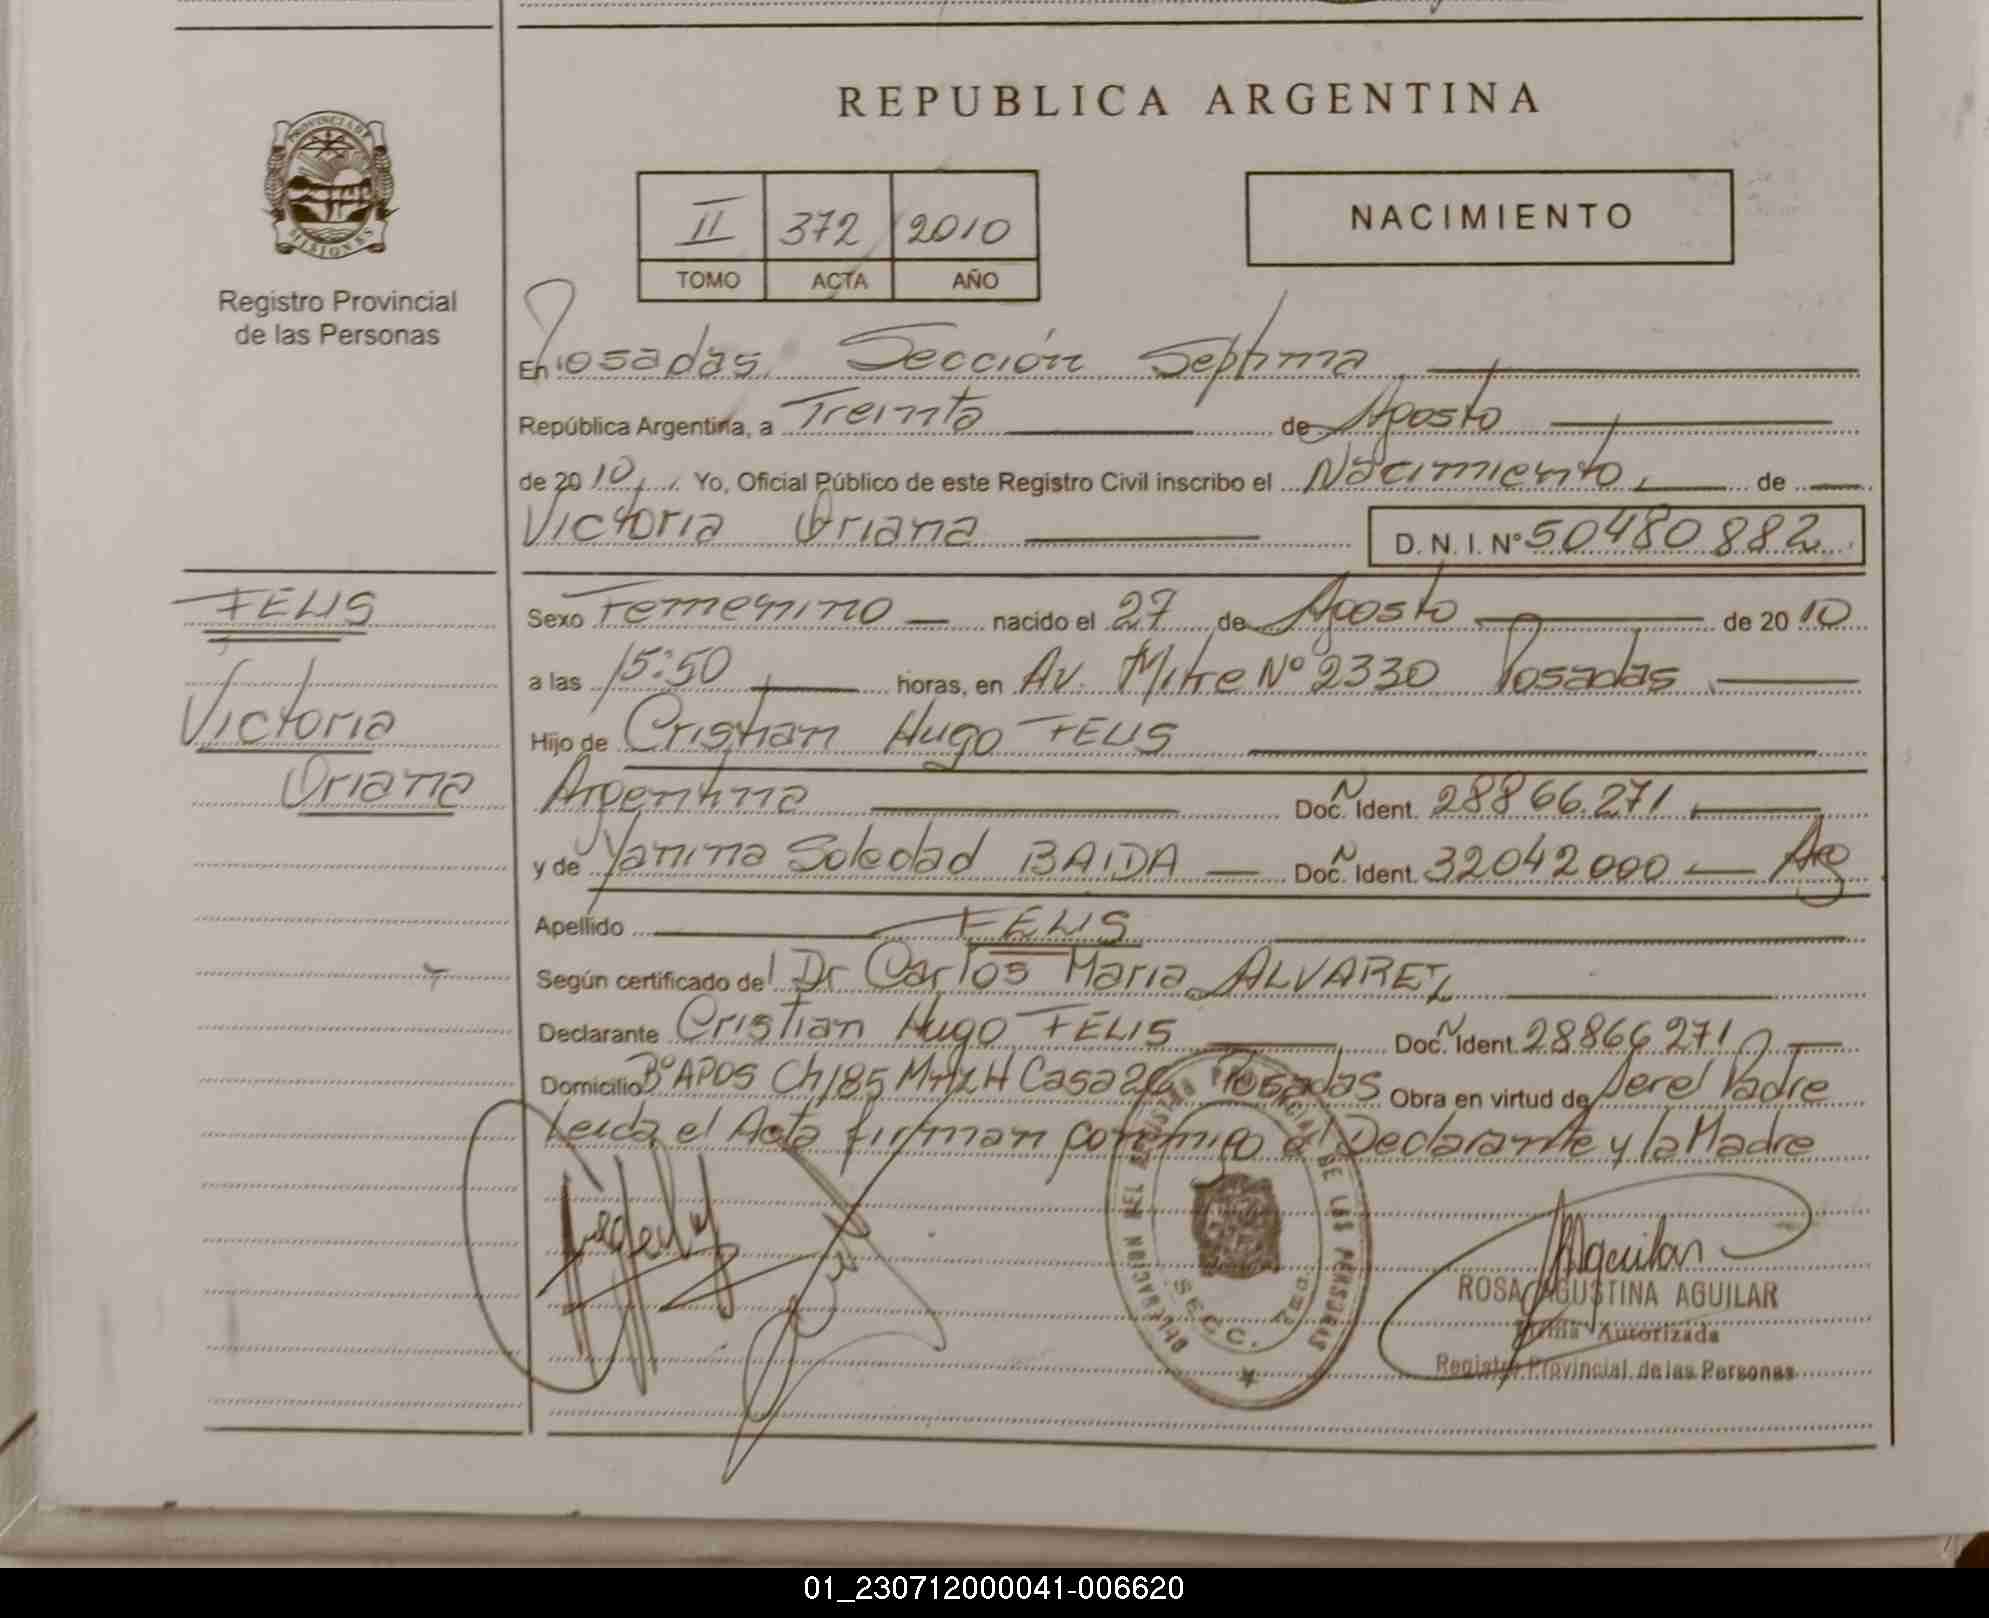 REPUBLICA ARGENTINA
PROVINCIA DE MISIONES
Registro Provincial
de las Personas
II 372 2010
TOMO ACTA AÑO
NACIMIENTO
En Posadas, Sección Septima
República Argentina, a Treinta de Agosto
de 2010, Yo, Oficial Público de este Registro Civil inscribo el Nacimiento de
Victoria Oriana D. N. I. Nº 50480882
FELIS
Victoria
Oriana
Sexo Femenino nacido el 27 de Agosto de 2010
a las 15:50 horas, en Av. Mitre Nº 2330 Posadas
Hijo de Cristian Hugo FELIS
Argentina Doc. Ident. 28866.271
y de Yanina Soledad BAIDA Doc. Ident. 32042000 Arg
Apellido FELIS
Según certificado del Dr Carlos Maria ALVAREZ
Declarante Cristian Hugo FELIS Doc. Ident. 28866271
Domicilio Bº APOS Ch 185 Mz H Casa 26 Posadas Obra en virtud de Ser el Padre
Leida el Acta firman conmigo el Declarante y la Madre
REGISTRO PROVINCIAL DE LAS PERSONAS
SECC. 7ma.
Aguilar
ROSA AGUSTINA AGUILAR
Firma Autorizada
Registro Provincial de las Personas
01_230712000041-006620